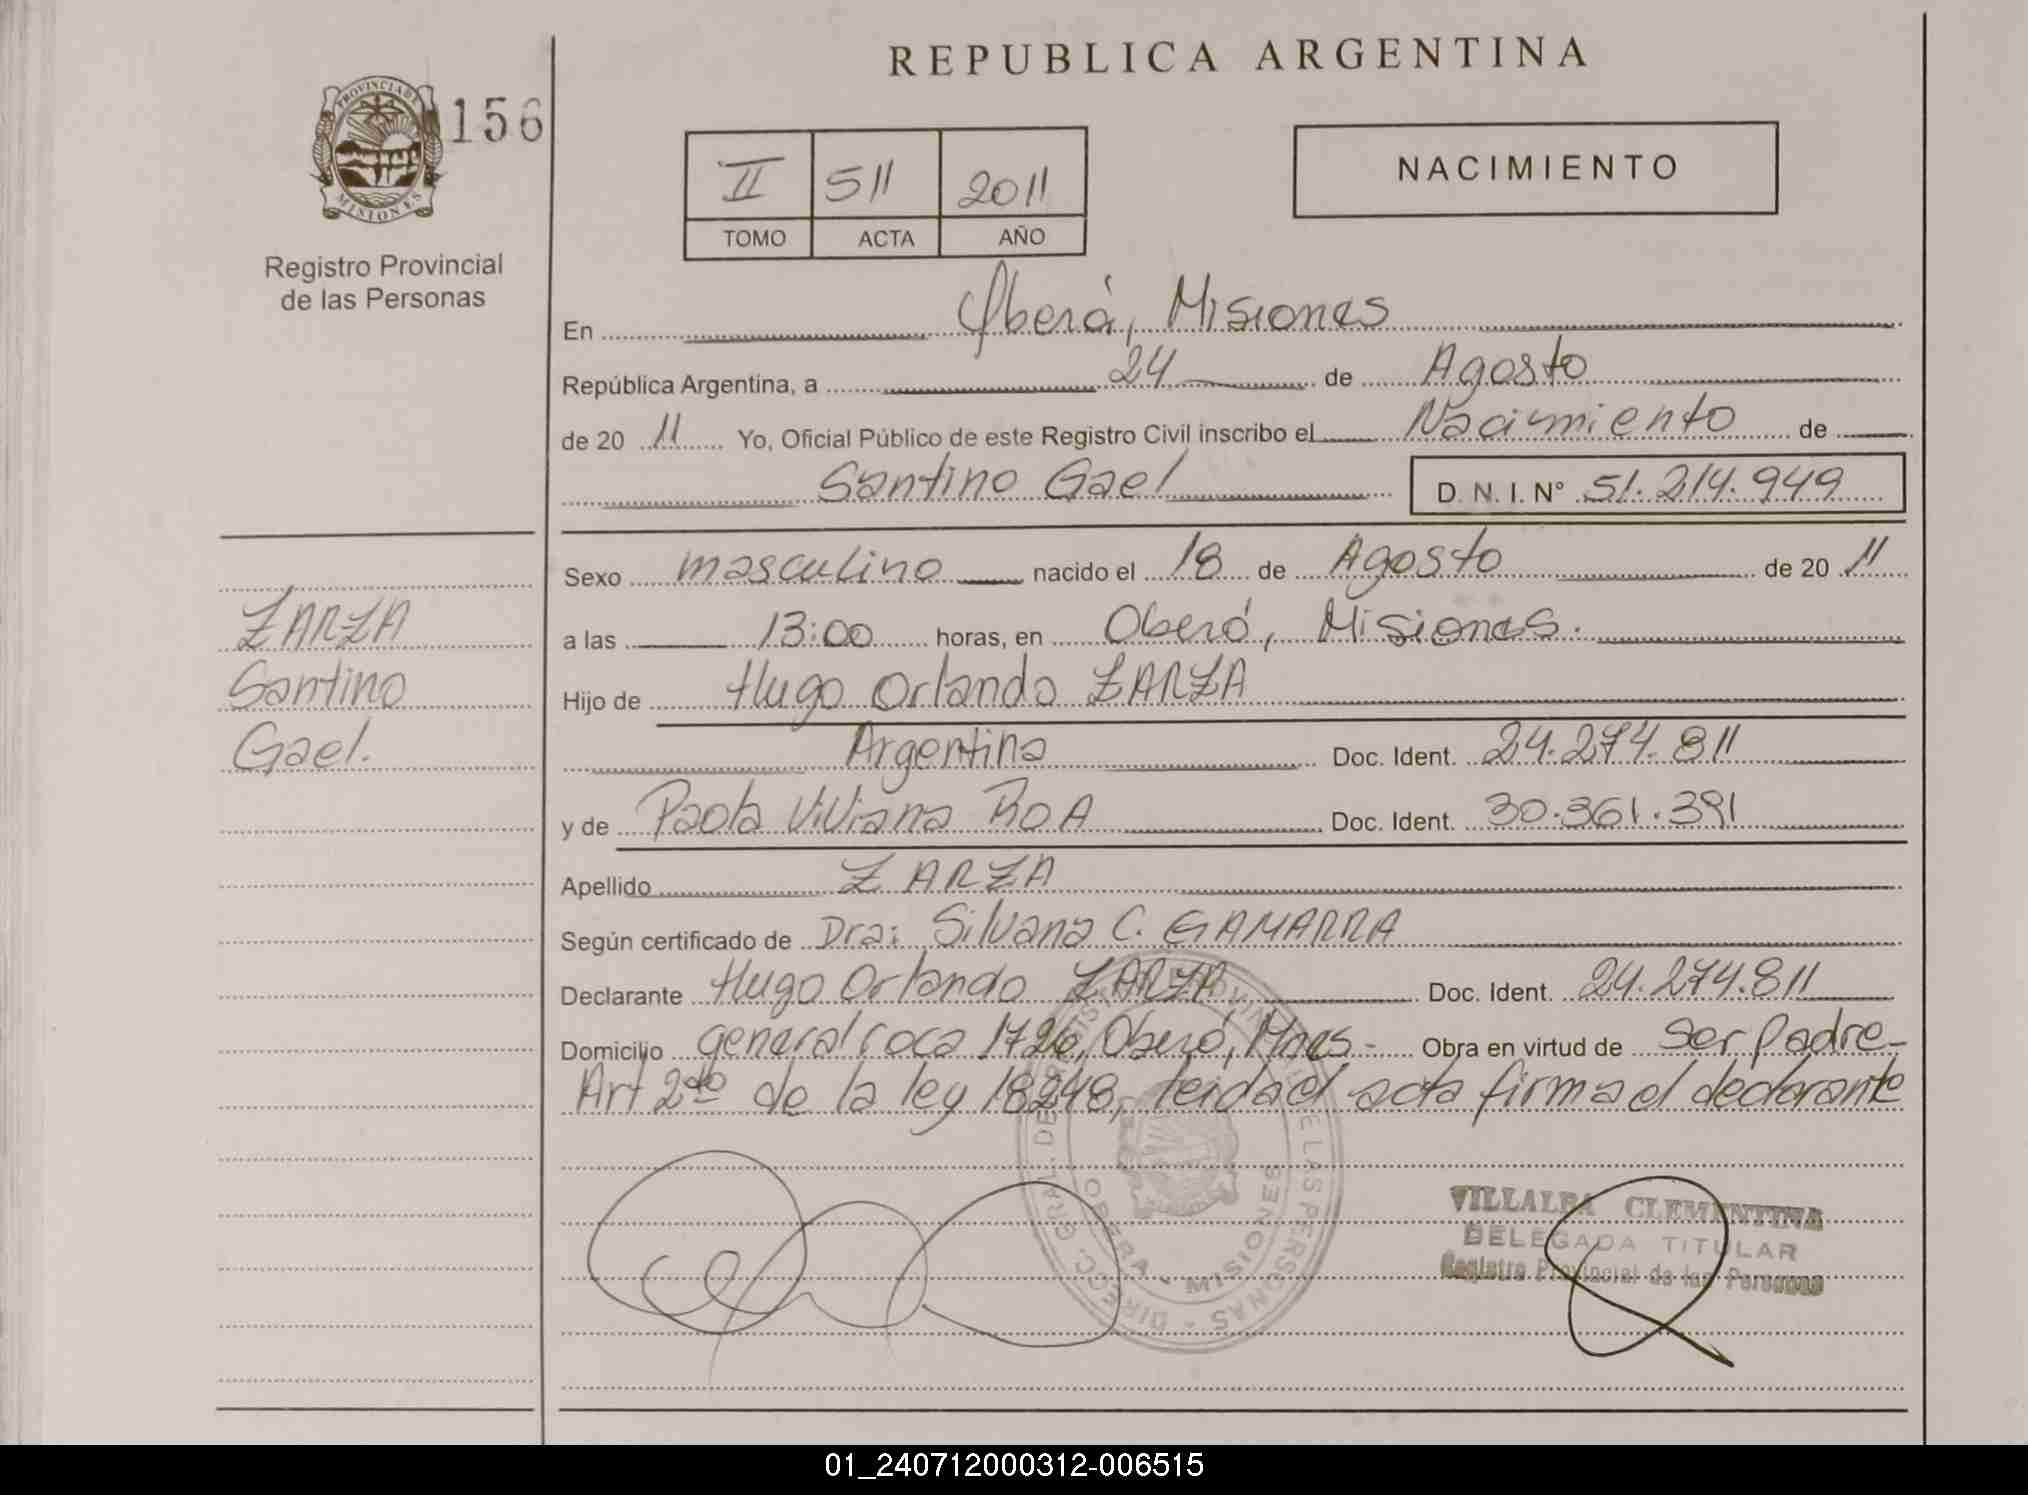 REPUBLICA ARGENTINA
PROVINCIA DE MISIONES
156
Registro Provincial
de las Personas
II 511 2011
TOMO ACTA AÑO
NACIMIENTO
En Oberá, Misiones
República Argentina, a 24 de Agosto
de 20 11 Yo, Oficial Público de este Registro Civil inscribo el Nacimiento de
Santino Gael D. N. I. N° 51.214.949
Sexo masculino nacido el 18 de Agosto de 20 11
a las 13:00 horas, en Oberá, Misiones.
Hijo de Hugo Orlando ZARZA
Argentina Doc. Ident. 24.274.811
y de Paola Viviana ROA Doc. Ident. 30.361.391
Apellido ZARZA
Según certificado de Dra: Silvana C. GAMARRA
Declarante Hugo Orlando ZARZA Doc. Ident. 24.274.811
Domicilio general roca 1726, Oberá, Mnes- Obra en virtud de Ser Padre-
Art 2do de la ley 18248, leida el acta firma el declarante
ZARZA
Santino
Gael.
DIRECC. GRAL. DEL REGISTRO PROVINCIAL DE LAS PERSONAS
OBERA - MISIONES
VILLALBA CLEMENTINA
DELEGADA TITULAR
Registro Provincial de las Personas
01_240712000312-006515